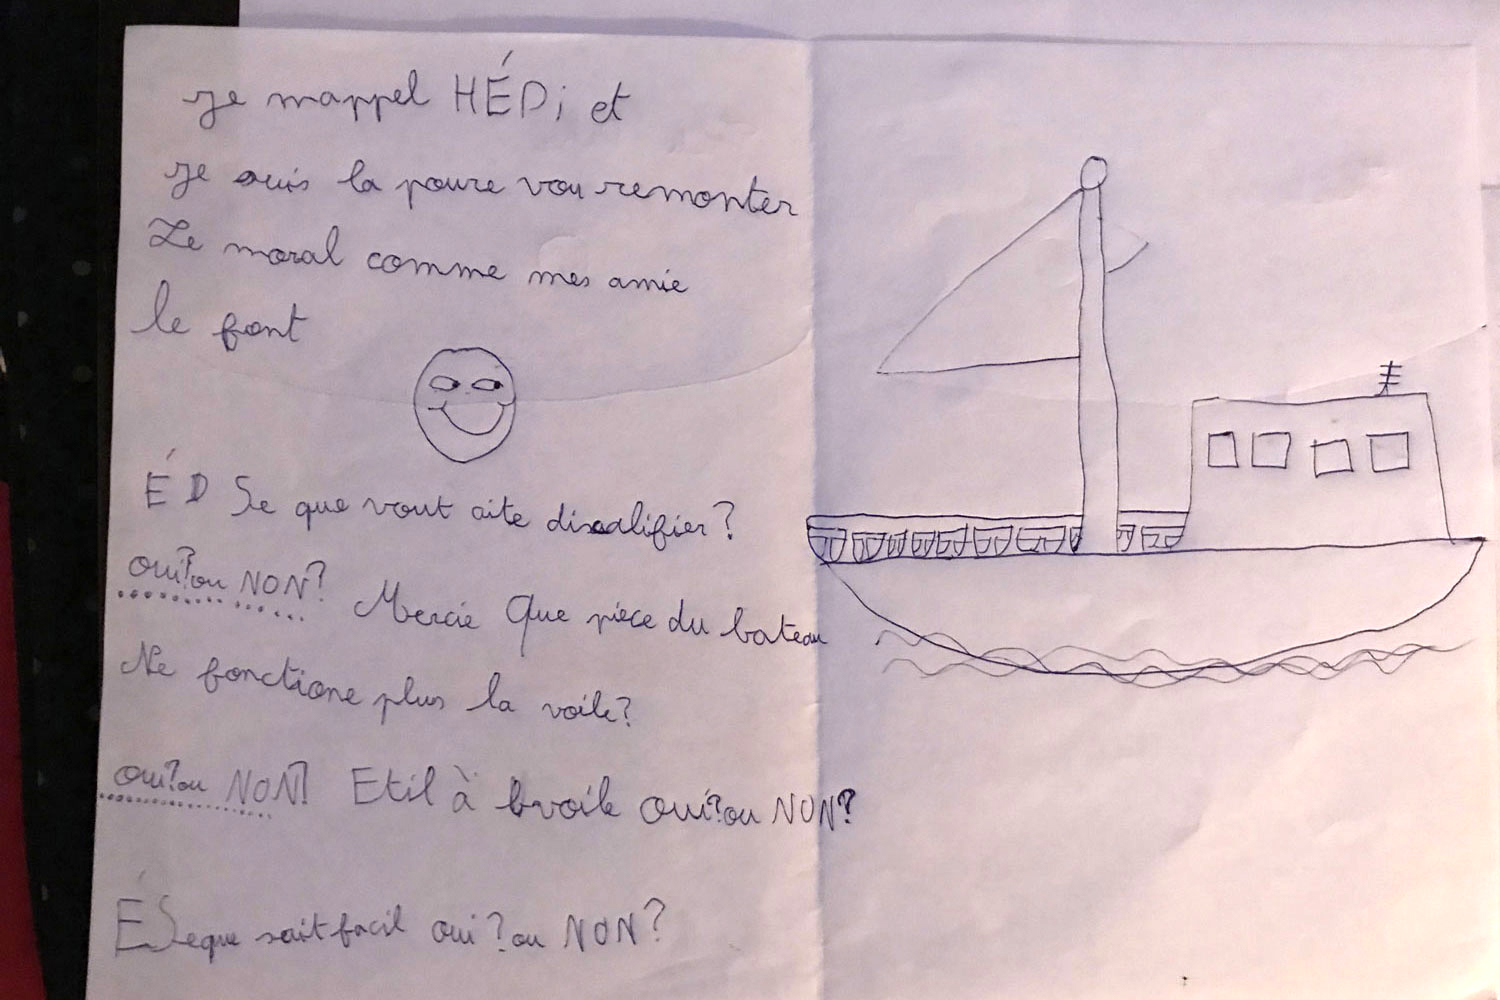 je mappel HÉDi et
je suis la poure vou remonter
Le moral comme mes amie
le font
É D Se que vout aite disalifier?
oui? ou NON? Mercie Que pièce du bateau
Ne fonctione plus la voile?
oui? ou NON? Etil à voile oui? ou NON?
ÉSeque sait facil oui? ou NON?